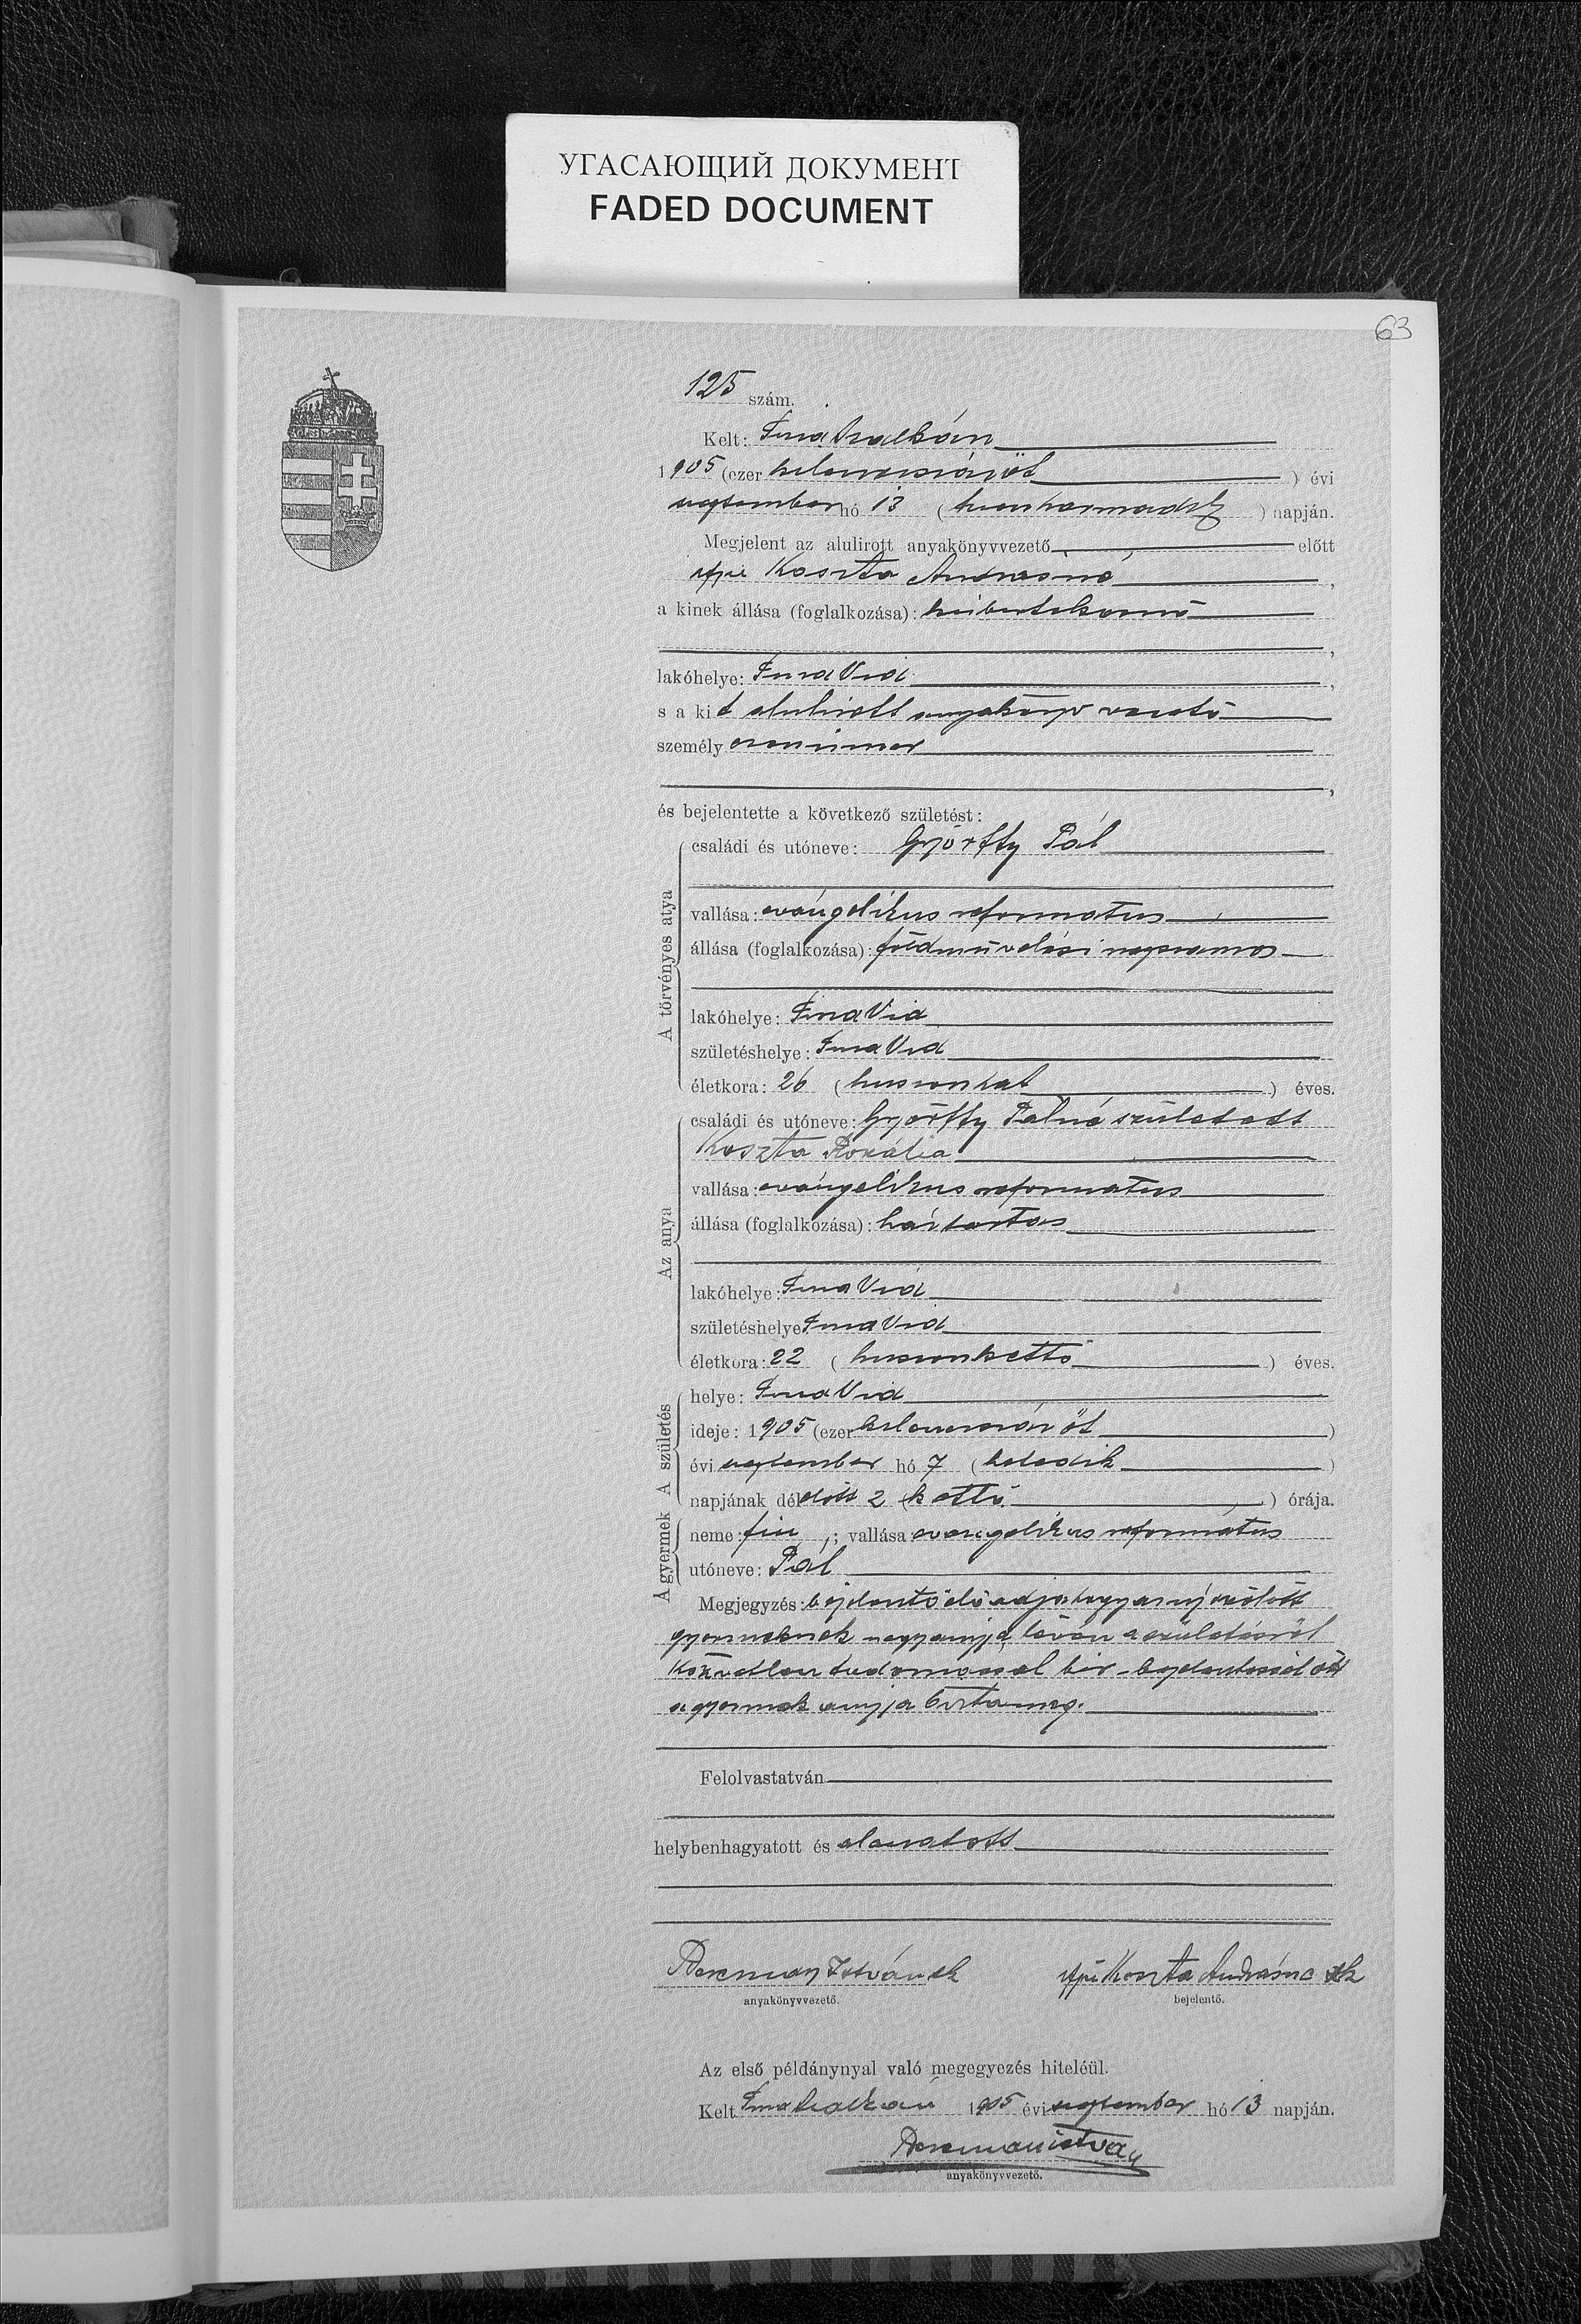 УГАСАЮЩИЙ ДОКУМЕНТ
FADED DOCUMENT
63
125 szám.
Kelt:
1905 (ezer kilencszázöt) évi
september hó 13 (tizenharmadik) napján.
Megjelent az alulirott anyakönyvvezető előtt
Koszta Andrásné,
a kinek állása (foglalkozása): kisbirtokosnő
,
lakóhelye:
s a kit alulirott anyakönyv vezető
személyesen ismer
,
és bejelentette a következő születést:
A törvényes atya
családi és utóneve: Györffy Pál
vallása: evángelikus reformatus
állása (foglalkozása): földmüvelési napszámos
lakóhelye:
születéshelye:
életkora: 26 (huszonhat) éves.
Az anya
családi és utóneve: Györffy Pálné született
Koszta Rozália
vallása: evángelikus reformatus
állása (foglalkozása): háztartás
lakóhelye:
születéshelye
életkora: 22 (huszonkettő) éves.
A születés
helye:
ideje: 1905 (ezer kilencszáz öt)
évi september hó 7 (hetedik)
napjának délelőtt 2 (kettő) órája.
A gyermek
neme: fiu,; vallása evangelikus református
utóneve: Pál
Megjegyzés: bejelentő előadja hogy az ujszülött
gyermeknek nagyanyja lévén a születésről
közvetlen tudomással bir - bejelentéssel őt
a gyermek anyja bizta meg.
Felolvastatván
helybenhagyatott és aláiratott
István sk
anyakönyvvezető.
Koszta Andrásné sk
bejelentő.
Az első példánynyal való megegyezés hiteléül.
Kelt 1905 évi september hó 13 napján.
István
anyakönyvvezető.